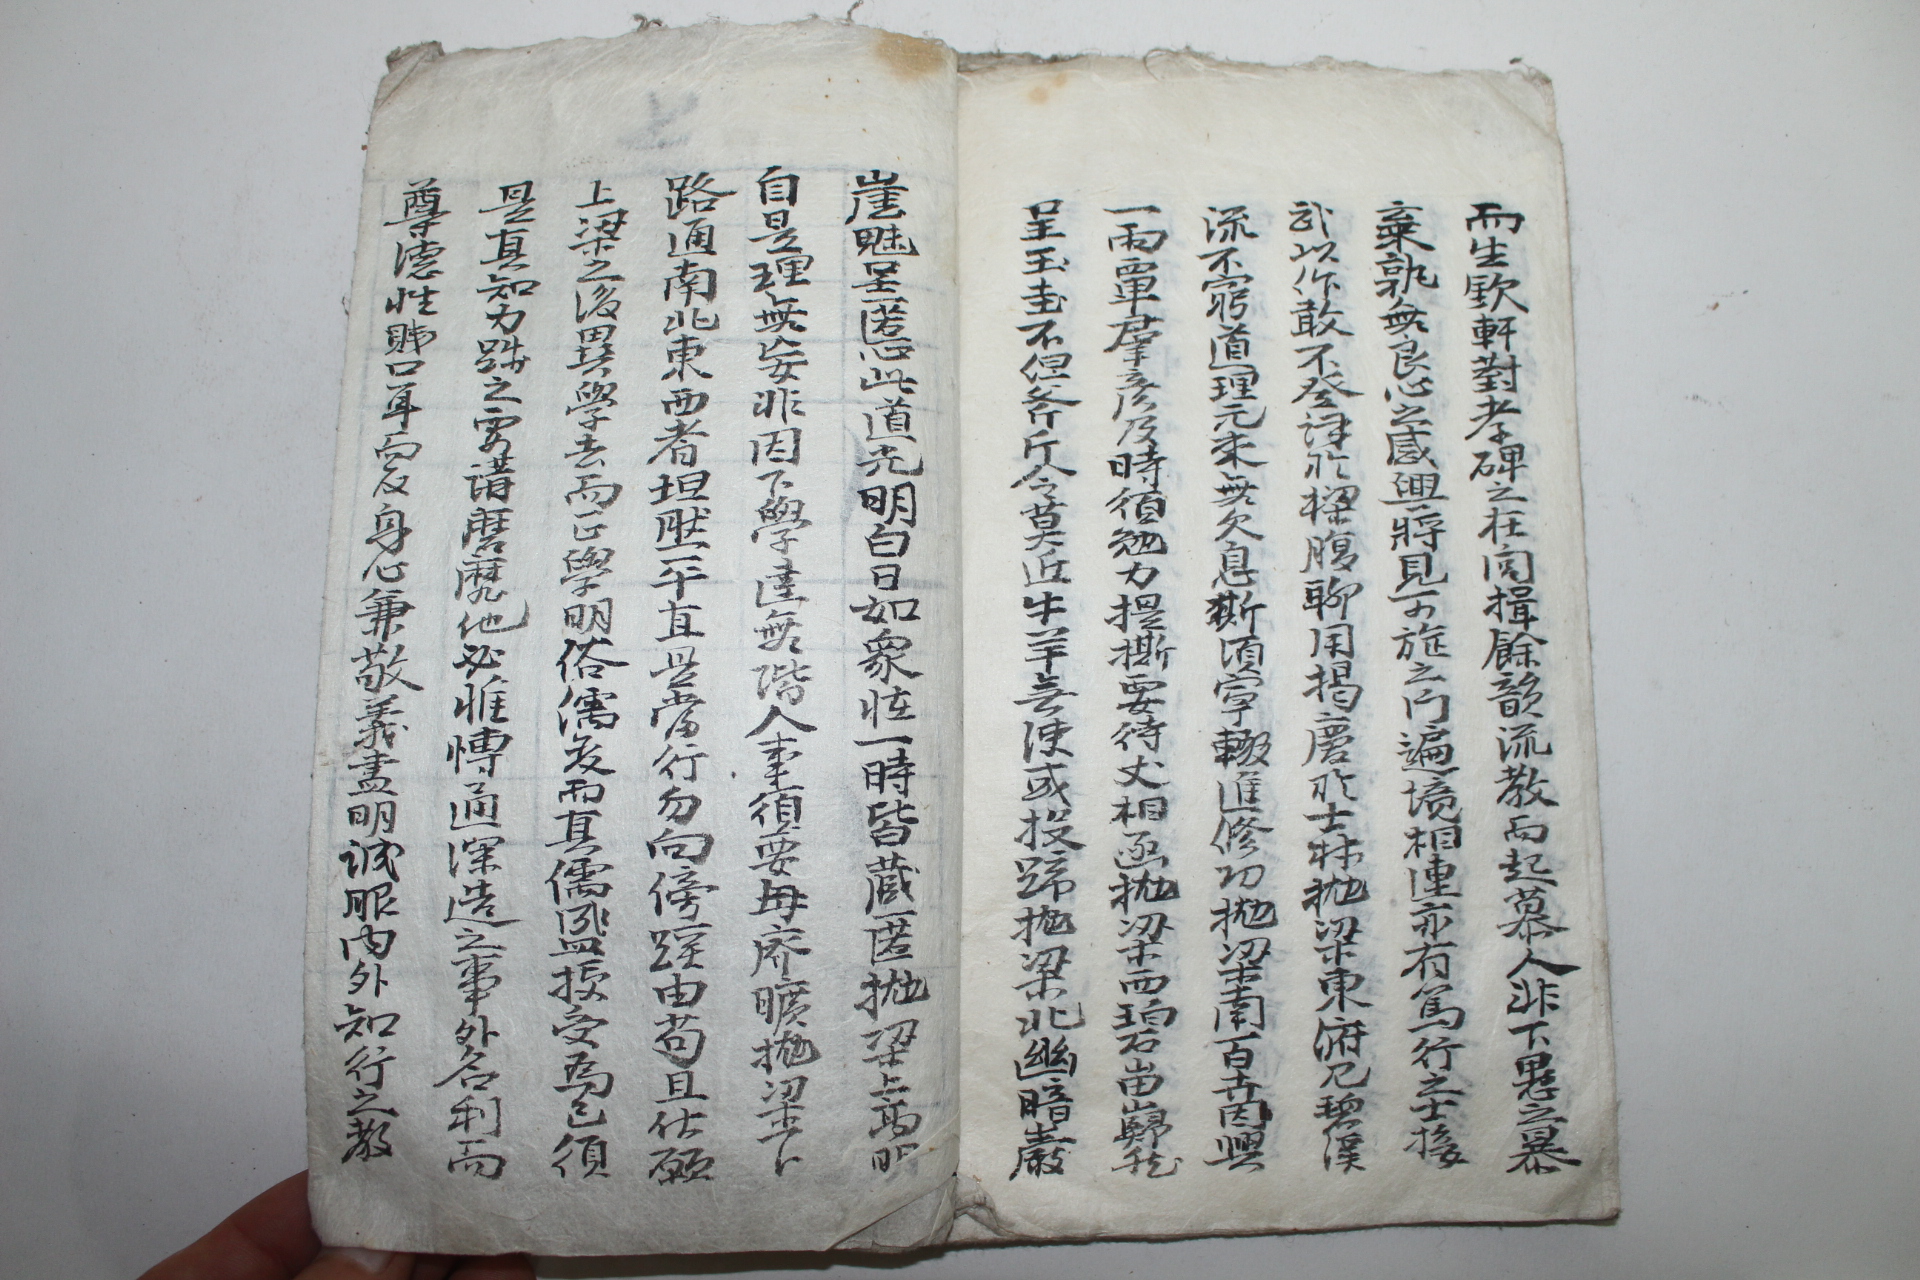 而生欽軒對孝碑之在閭揖餘韻流教而起慕人非下愚之暴
棄孰無良心之感興將見可施之門遍境相連亦有篤行之士接
武以作敢不登詳於樑腹聊用揭慶於士林抛梁東府尺碧溪
流不窮道理元來無欠息斯須寧輟進修功抛梁南百卉因興
一雨覃群彦及時須勉力提撕要待丈相函抛梁西珀石崗巋我
呈玉圭不但斧斤今莫近牛羊無使或投蹄抛梁北幽暗巖
崖魅呈匿慝此道光明白日如衆怪一時皆藏匿抛梁上高明
自是理無妄非因下學達無階人事須要毋序曠抛梁下
路通南北東西者坦然一平直且當行勿向傍蹊由苟且伏願
上梁之後異學去而正學明俗儒变而真儒興授受爲己須
是真知力踐之實講磨麗他必惟博通深造之事外名利而
尊德性賤口耳而反身心兼敬義盡明誠服内外知行之教
上